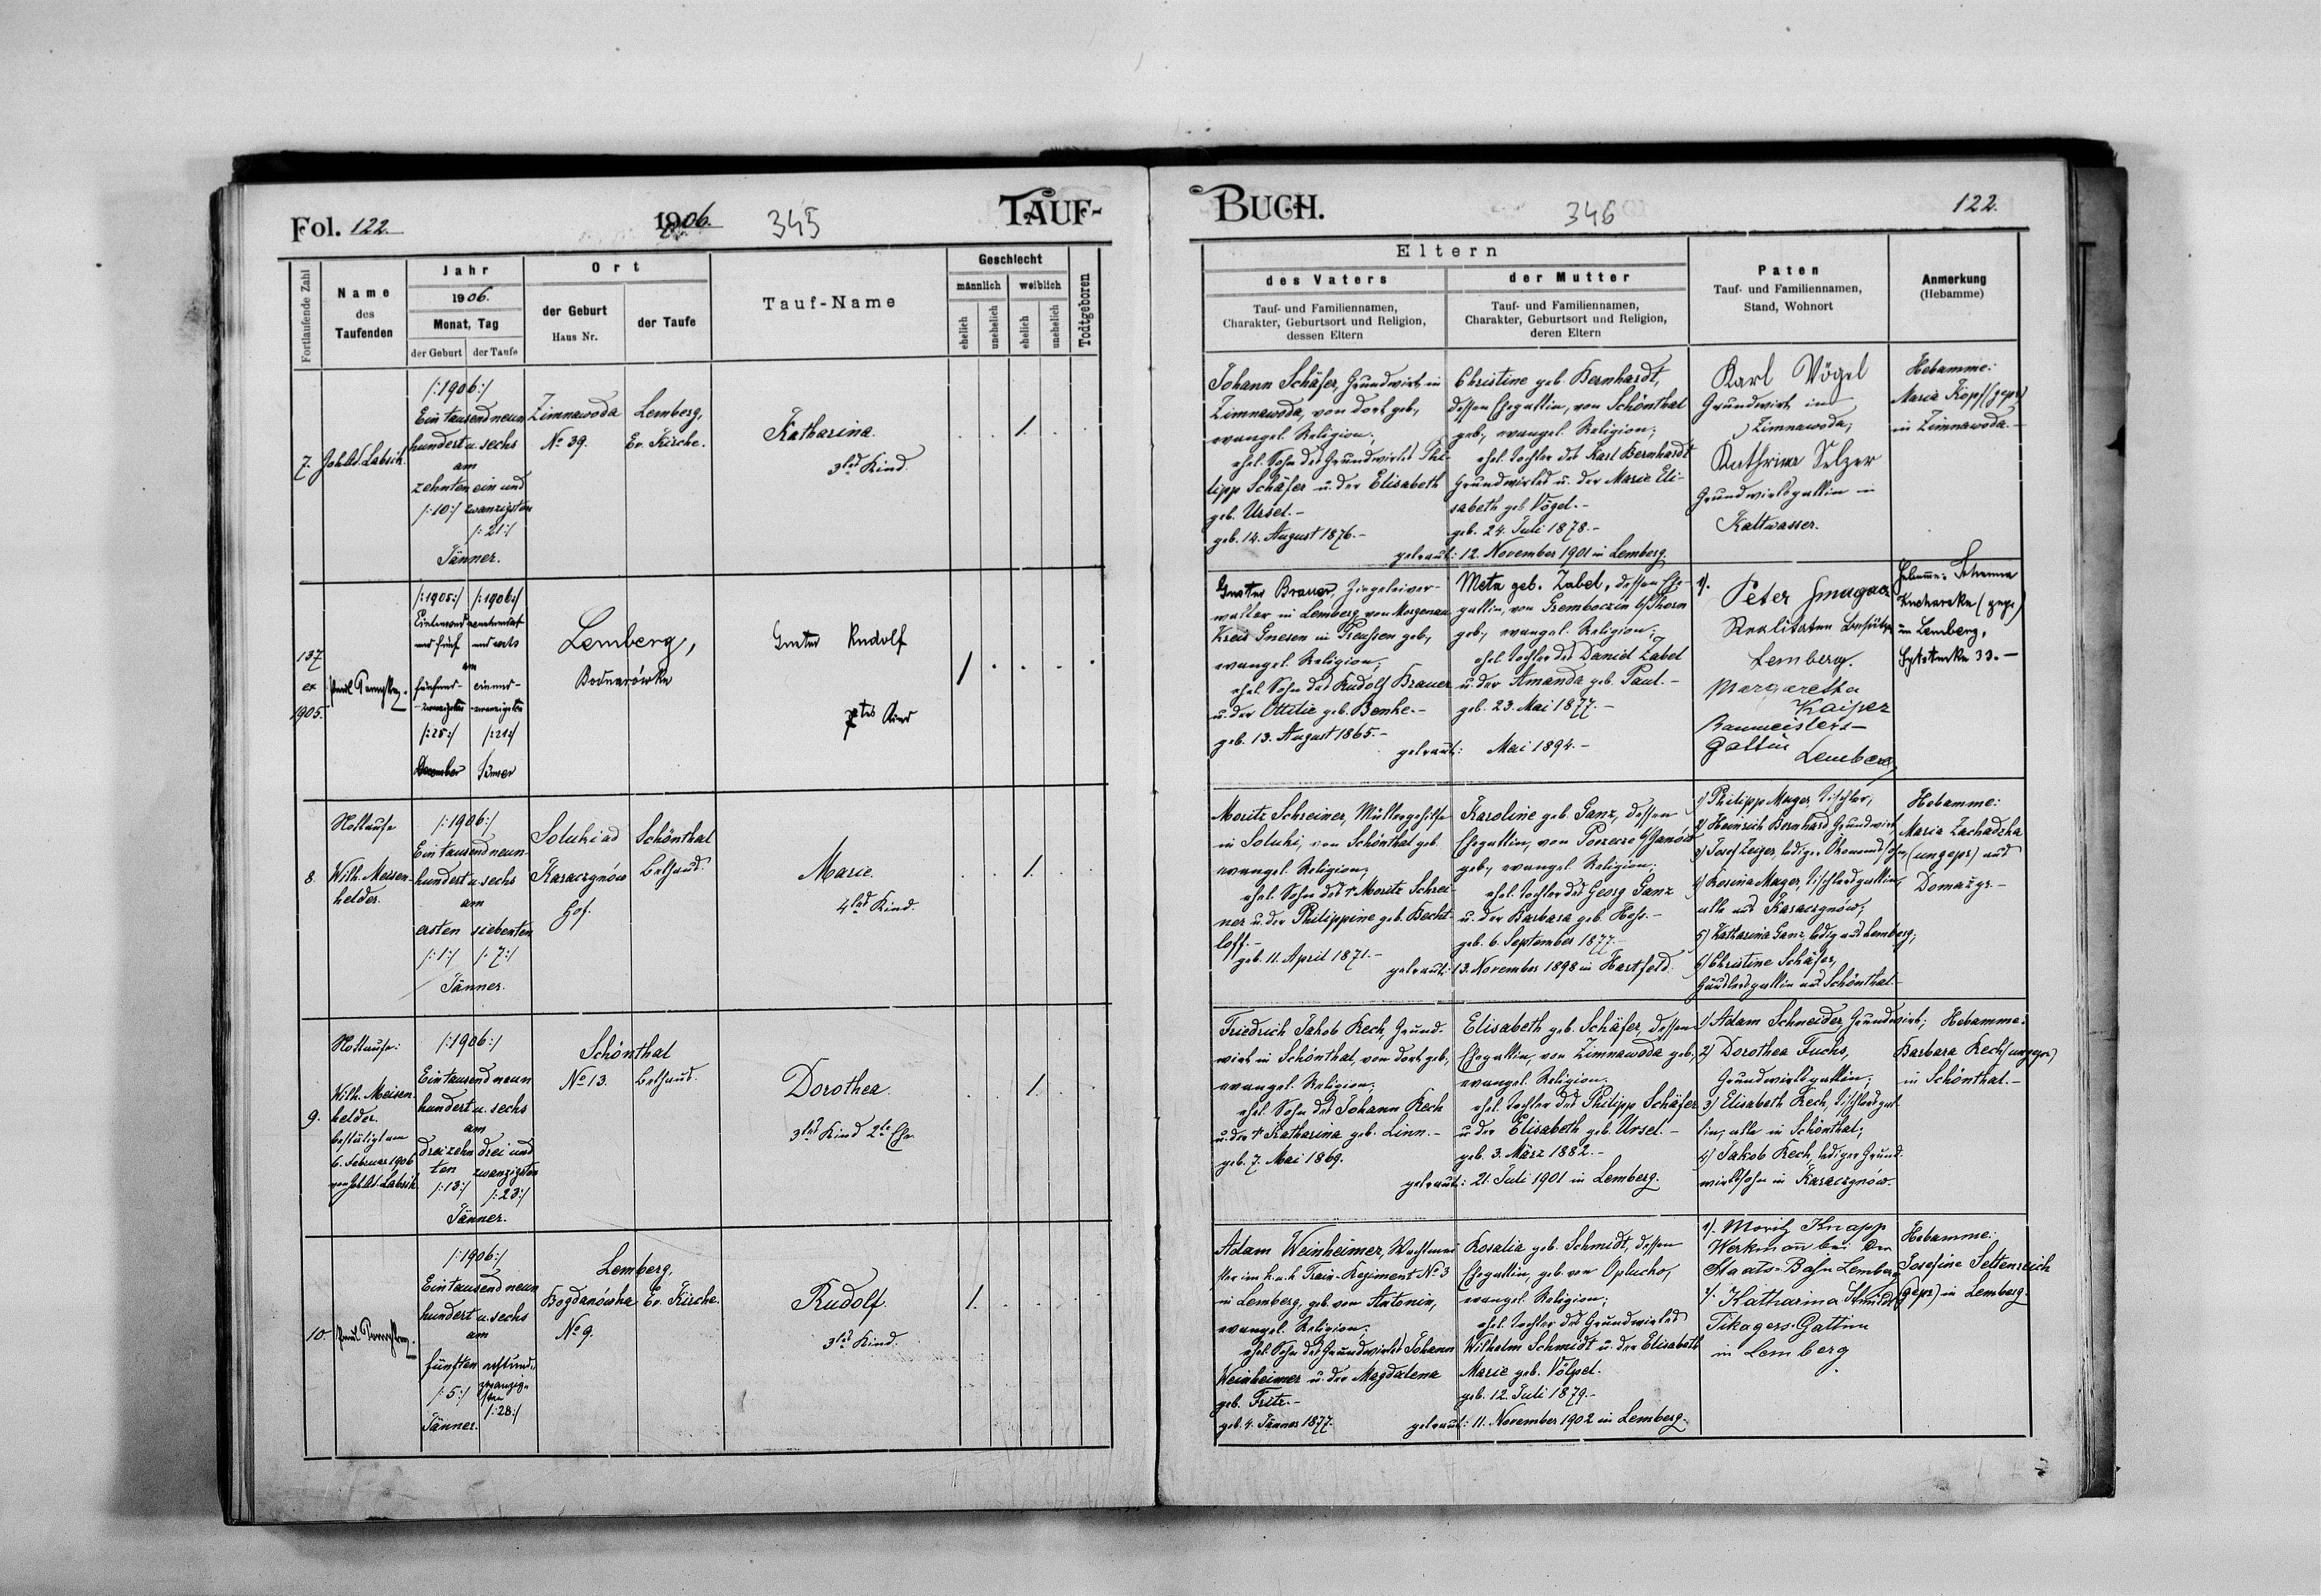 Fol. 122.
1906.
345
TAUF-
Fortlaufende Zahl
Name
des
Taufenden
Jahr
1906.
Monat, Tag
der Geburt
der Taufe
Ort
der Geburt
Haus Nr.
der Taufe
Tauf-Name
Geschlecht
männlich
weiblich
ehelich
unehelich
ehelich
unehelich
Todtgeboren
7.
/:1906:/
Ein tausend neun
hundert u. sechs
am
zehnten ein und
/:10:/ zwanzigsten
/:21:/
Jänner.
Zimnawoda
No 39.
Lemberg,
Ev. Kirche.
Katharina.
3tes Kind.
1.
137
ex
1905.
/:1905:/ /:1906:/
am
/:25:/ /:21:/
December Jänner
Lemberg,
Bodnarówka
Rudolf
Kind
1
8.
Nottaufe
Wilh. Meisen-
helder.
/:1906:/
Ein tausend neun-
hundert u. sechs
am
ersten siebenten
/:1:/ /:7:/
Jänner.
Soluki ad
Karaczynów
Hof.
Schönthal
Bethaus.
Marie.
4tes Kind.
1.
9.
Nottaufe:
Wilh. Meisen-
helder.
bestätigt am
6. Februar 1906
/:1906:/
Ein tausend neun
hundert u. sechs
am
dreizehn drei und
ten zwanzigsten
/:13:/ /:23:/
Jänner.
Schönthal
No 13. Bethaus.
Dorothea.
3tes Kind 2te Ehe.
1.
10.
/:1906:/
Ein tausend neun
hundert u. sechs
am
fünften achtund-
zwanzig-
sten
/:5:/ /:28:/
Jänner.
Lemberg,
Bogdanówka Ev. Kirche.
No 9.
Rudolf.
3tes Kind.
1.
BUCH.
346
122.
Eltern
des Vaters
Tauf- und Familiennamen,
Charakter, Geburtsort und Religion,
dessen Eltern
der Mutter
Tauf- und Familiennamen,
Charakter, Geburtsort und Religion,
deren Eltern
Paten
Tauf- und Familiennamen,
Stand, Wohnort
Anmerkung
(Hebamme)
Johann Schäfer, Grundwirt in
Zimnawoda, von dort geb.,
evangel. Religion;
ehel. Sohn des Grundwirtes Phi-
lipp Schäfer u. der Elisabeth
geb. Ursel.-
geb. 14. August 1876.-
Christine geb. Bernhardt,
dessen Ehegattin, von Schönthal
geb., evangel. Religion;
ehel. Tochter des Karl Bernhardt
Grundwirtes u. der Marie Eli-
sabeth geb. Vögel.-
geb. 24. Juli 1878.-
getraut: 12. November 1901 in Lemberg.
Karl Vögel
Grundwirt in
Zimnawoda,
Kathrina Selzer
Grundwirtsgattin in
Kaltwasser.
Hebamme:
Maria Kopf (gepr)
in Zimnawoda.-
Brauer, Ziegeleiver-
walter in Lemberg, von Morgenau
Kreis Gnesen in Preußen geb.,
evangel. Religion;
ehel. Sohn des Rudolf Brauer
u. der Ottilie geb. Benke.-
geb. 13. August 1865.-
Meta geb. Zabel, dessen Ehe-
gattin, von Gremboczin b/Thorn
geb., evangel. Religion;
ehel. Tochter des Daniel Zabel
u. der Amanda geb. Paul.-
geb. 23. Mai 1877.-
getraut: Mai 1894.-
1).
Peter
Realitäten Besitzer
Lemberg.
Margaretha
Kaiser
Baumeisters-
Gattin
Lemberg
in Lemberg,
33.-
Moritz Schreiner, Müllergehilfe
in Soluki, von Schönthal geb.
evangel. Religion;
ehel. Sohn des † Moritz Schrei-
ner u. der Philippine geb. Becht-
loff.-
geb. 11. April 1871.-
Karoline geb. Ganz, dessen
Ehegattin, von Porzecze b/Janów
geb., evangel. Religion;
ehel. Tochter des Georg Ganz
u. der Barbara geb. Heß.-
geb. 6. September 1877.-
getraut: 13. November 1898 in Hartfeld.
1) Philipp Mager, Tischler,
2) Heinrich Bernhard Grundwirt,
3) Josef Zeiger, lediger Ökonomssohn,
4) Rosina Mager, Tischlersgattin,
alle aus Karaczynów;
5) Katharina Ganz, ledig aus Lemberg;
6) Christine Schäfer,
aus Schönthal.-
Hebamme:
Maria Zachadzka
(ungepr) aus
Domażyr.-
Friedrich Jakob Rech, Grund-
wirt in Schönthal, von dort geb.,
evangel. Religion;
ehel. Sohn des Johann Rech
u. der † Katharina geb. Linn.-
geb. 7. Mai 1869.
Elisabeth geb. Schäfer, dessen
Ehegattin, von Zimnawoda geb.,
evangel. Religion;
ehel. Tochter des Philipp Schäfer
u. der Elisabeth geb. Ursel.-
geb. 3. März 1882.-
getraut: 21. Juli 1901 in Lemberg.
1) Adam Schneider, Grundwirt;
2) Dorothea Fuchs,
Grundwirtsgattin;
3) Elisabeth Rech, Tischlersgat-
tin, alle in Schönthal;
4) Jakob Rech, lediger Grund-
wirtssohn in Karaczynów.
Hebamme:
Barbara Rech (ungepr)
in Schönthal.-
Adam Weinheimer, Wachtmei-
ster im k.u.k. Train-Regiment No 3
in Lemberg, geb. von Antonin,
evangel. Religion;
ehel. Sohn des Grundwirtes Johann
Weinheimer u. der Magdalena
geb. Fritz.-
geb. 4. Jänner 1877.
Rosalia geb. Schmidt, dessen
Ehegattin, geb. von Oplucko,
evangel. Religion;
ehel. Tochter des Grundwirtes
Wilhelm Schmidt u. der Elisabeth
Marie geb. Völpel.
geb. 12. Juli 1879.-
getraut: 11. November 1902 in Lemberg.
1). Moritz Knapp
Werkmann bei der
Staats-Bahn Lemberg
2). Katharina Schmidt
Gattin
in Lemberg
Hebamme:
Josefine Seltenreich
(gepr) in Lemberg.